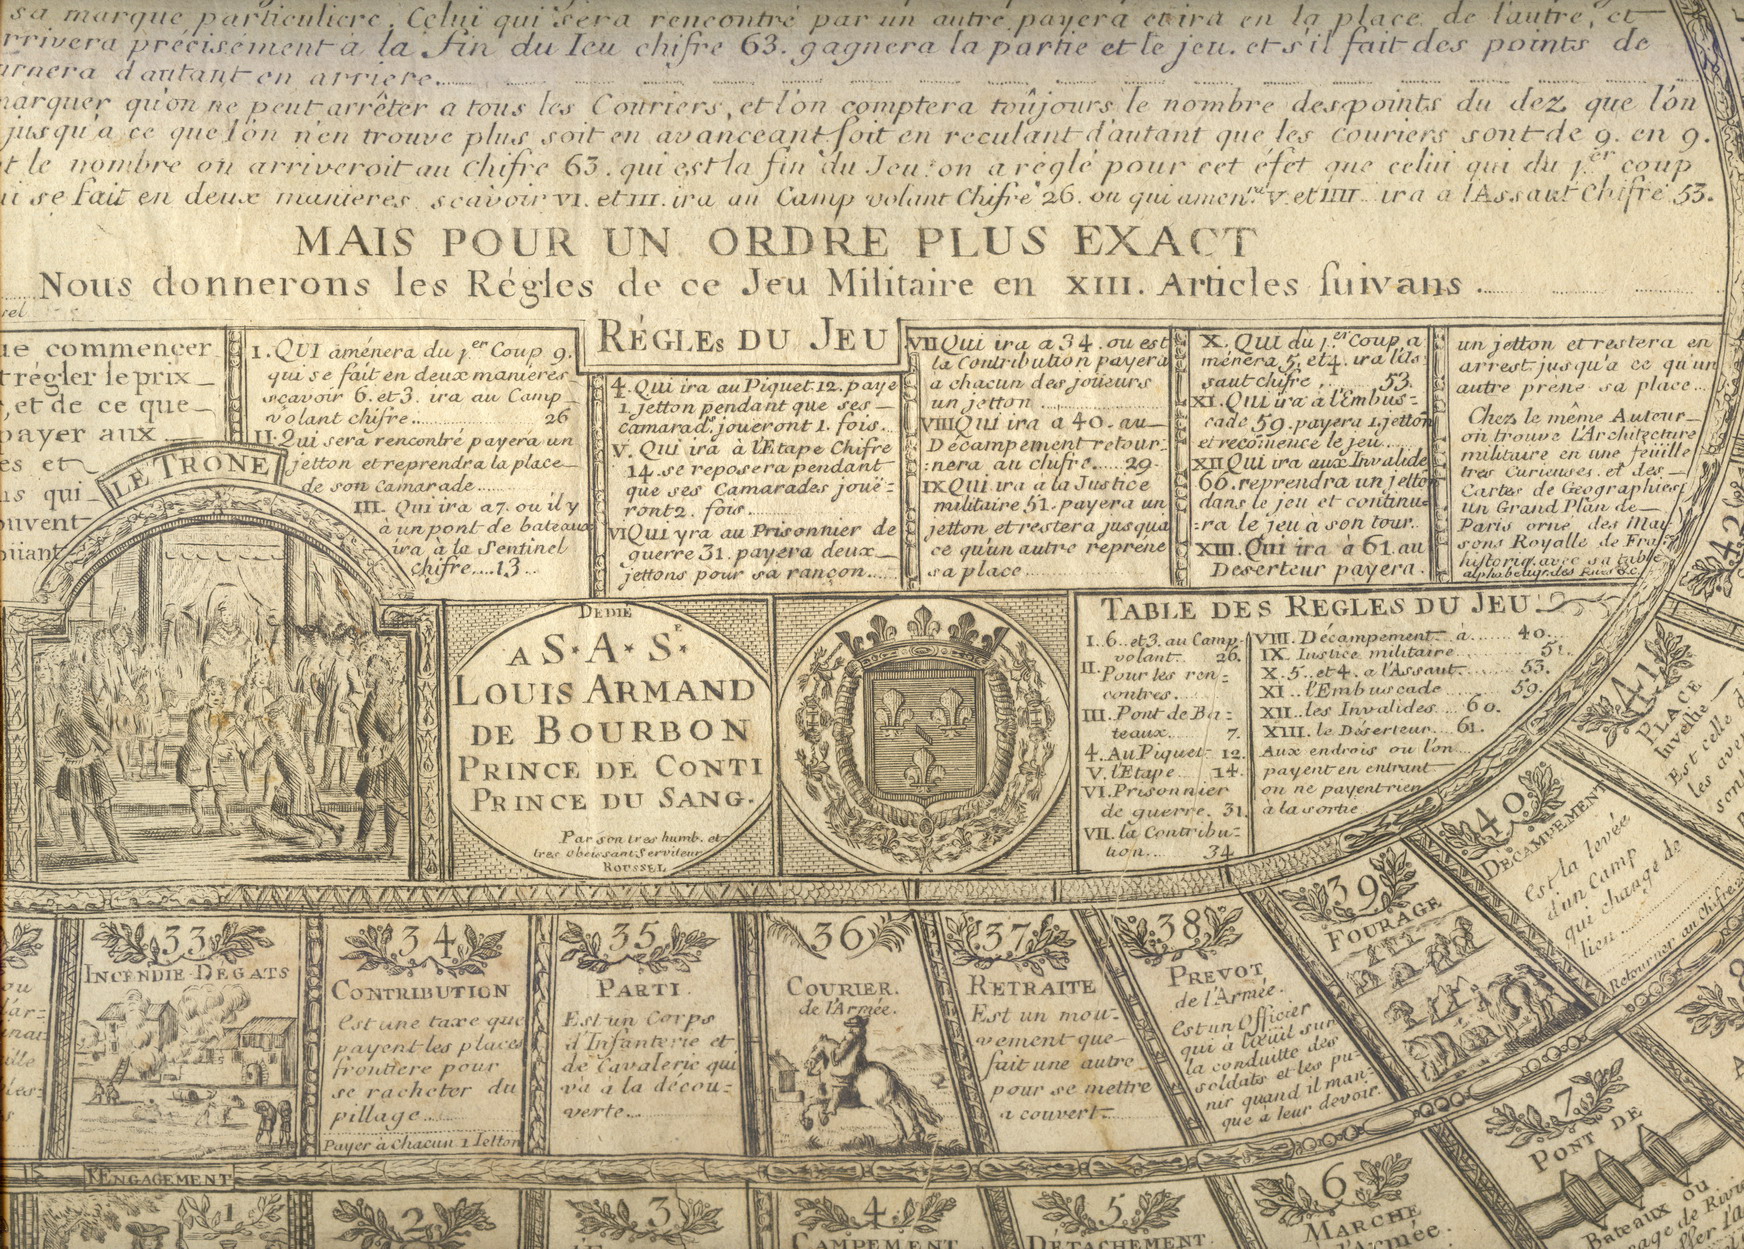 sa marque particuliere. Celui qui sera rencontré par un autre payera et ira en la place de l'autre, et
rrivera précisement à la fin du Ieu chifre 63. gagnera la partie et le jeu. et s'il fait des points de
urnera d'autant en arriere.
arquer qu'on ne peut arrêter a tous les Couriers, et l'on comptera toûjours le nombre des points du dez que l'on
jusqu'a ce que l'on n'en trouve plus soit en avanceant soit en reculant d'autant que les couriers sont de 9. en 9.
t le nombre on arriveroit au chifre 63. qui est la fin du Jeu: on a réglé pour cet éfét que celui qui du 1.er coup
ui se fait en deux manieres scavoir VI. et III. ira au Camp volant Chifre 26. ou qui amen.ra V. et IIII. ira a l'Assaut Chifre 53.
MAIS POUR UN ORDRE PLUS EXACT
Nous donnerons les Régles de ce Jeu Militaire en XIII. Articles suivans
sel
REGLES DU JEU
ue commencer
t régler le prix
, et de ce que
payer aux
es et
us qui
ouvent
I. QUI aménera du 1.er Coup 9.
qui se fait en deux manieres
scavoir 6. et 3. ira au Camp
volant chifre 26
II. Qui sera rencontré payera un
jetton et reprendra la place
de son Camarade
III. Qui ira a 7. ou il y
à un pont de bateaux
ira à la Sentinel
chifre 13
4. Qui ira au Piquet 12. paye
1. jetton pendant que ses
camarad.s joueront 1. fois
V. Qui irà à l'Etape Chifre
14. se reposera pendant
que ses Camarades joüe-
ront 2. fois
VI Qui yra au Prisonnier de
guerre 31. payera deux
jettons pour sa rançon
VII Qui ira a 34. ou est
la Contribution payera
a chacun des joüeurs
un jetton
VIII Qui ira a 40. au
Décampement retour:
:nera au chifre 29.
IX Qui ira a la Justice
militaire 51. payera un
jetton et restera jusqua
ce qu'un autre repréne
sa place
X. Qui du 1.er Coup a
ménera 5. et 4. ira l'as
saut chifre 53.
XI. Qui ira à l'Embus=
cade 59. payera 1. jetton
et recōmence le jeu
XII Qui ira aux Invalide
60. reprendra un jetton
dans le jeu et continue
:ra le jeu à son tour
XIII. Qui ira à 61. au
Deserteur payera
un jetton et restera en
arrest jusqu'a ce qu'un
autre prene sa place
Chez le même Auteur
on trouve l'Architecture
militaire en une feüille
tres Curieuses et des
Cartes de Geographies
un Grand Plan de
Paris orné des May
sons Royalle de Fra
historiq. avec sa table
alphabetiq. des Rues &c.
LE TRONE
DEDIÉ
A S.A.S.E
LOUIS ARMAND
DE BOURBON
PRINCE DE CONTI
PRINCE DU SANG.
Par son tres humb. et
tres obeissant Serviteur
ROUSSEL
TABLE DES REGLES DU JEU
I. 6. et 3. au Camp.
volant. 26.
II. Pour les ren-
contres.
III. Pont de Ba-
teaux 7.
4. Au Piquet 12.
V. l'Etape 14.
VI. Prisonnier
de guerre. 31.
VII. la Contribu-
tion 34
VIII. Décampement à 40
IX. Justice militaire 51.
X. 5. et 4. a l'Assaut 53.
XI. l'Embuscade 59.
XII. les Invalides 60.
XIII. le Déserteur 61.
Aux endrois ou l'on
payent en entrant
on ne payent rien
à la sortie
42
41
PLACE
Investie
Est celle
les ave
sont
40
DECAMPEMENT
est la levée
d'un Camp
qui change de
lieu
Retourner au Chifre
39
FOURAGE
38
PREVOT
de l'Armée.
est un Officier
qui à l'œüil sur
la conduitte des
soldats et les pu-
nir quand il man-
que à leur devoir.
37
RETRAITE
Est un mou-
vement que
fait une autre
pour se mettre
a couvert
36
COURIER.
de l'Armée.
35
PARTI.
Est un Corps
d'Infanterie et
de Cavalerie qui
va a la décou-
verte
34
CONTRIBUTION
est une taxe que
payent les places
frontiere pour
se racheter du
pillage
Payer à chacun 1 Jetton
33
INCENDIE DEGATS
ENGAGEMENT
1
2
3
4
CAMPEMENT
5
DÉTACHEMENT
6
MARCHE
d'Armée.
7
PONT DE
Bateaux ou